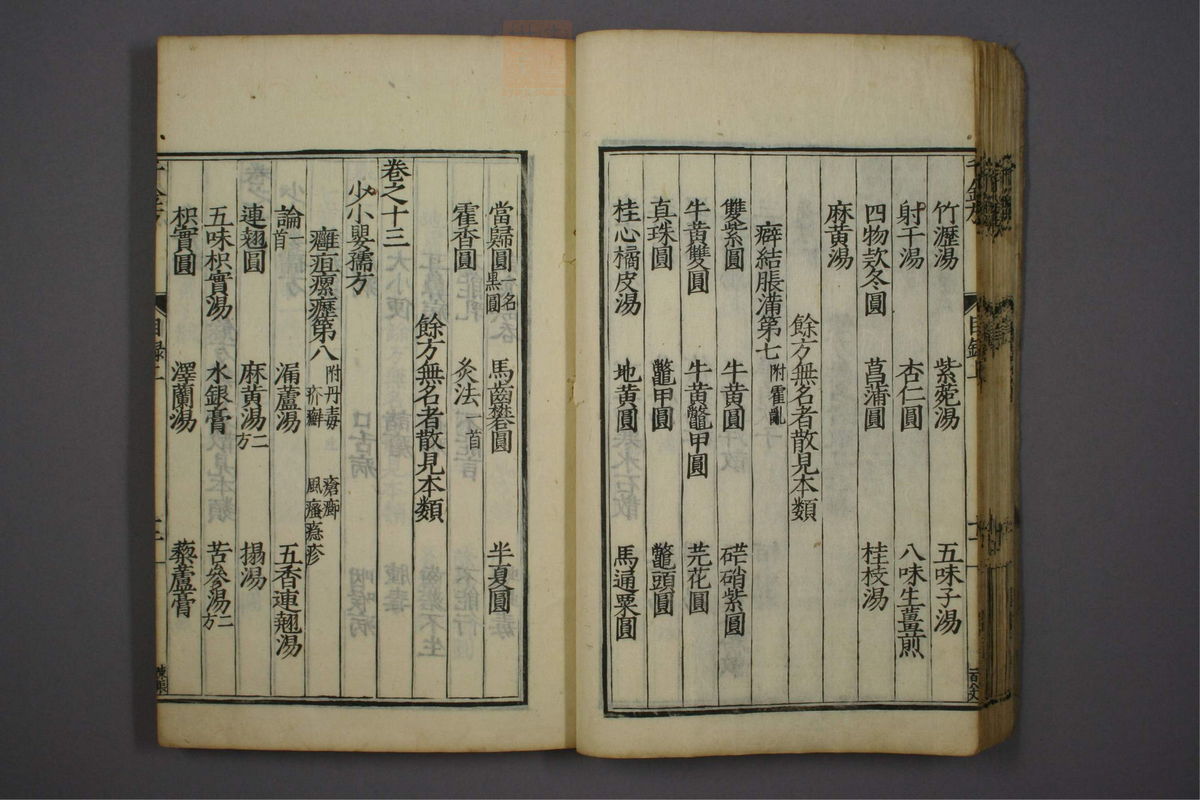 竹瀝湯 紫菀湯 五味子湯
射干湯 杏仁圓 八味生薑煎
四物款冬圓 菖蒲圓 桂枝湯
麻黃湯
餘方無名者散見本類
癖結脹滿第七 附霍亂
雙紫圓 牛黃圓 芒硝紫圓
牛黃雙圓 牛黃鼈甲圓 芫花圓
真珠圓 鼈甲圓 鼈頭圓
桂心橘皮湯 地黃圓 馬通粟圓
當歸圓 一名黑圓 馬齒礬圓 半夏圓
霍香圓 灸法 一首
餘方無名者散見本類
卷之十三
少小嬰孺方
癰疽瘰癧第八 附丹毒 疥癬 瘡癤 風瘙癮疹
論一首 漏蘆湯 五香連翹湯
連翹圓 麻黃湯二方 搨湯
五味枳實湯 水銀膏 苦參湯二方
枳實圓 澤蘭湯 藜蘆膏